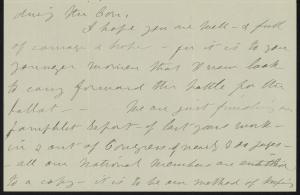 during the Con.
I hope you are well - & full
of courage & hope - for it is to you
younger women that I now look
to carry forward the battle for the
ballot - We are just finishing our
pamphlet report of last years work -
in & out of Congress of nearly pages -
all our National Members are entitled
to a copy - it is to be our method of keeping